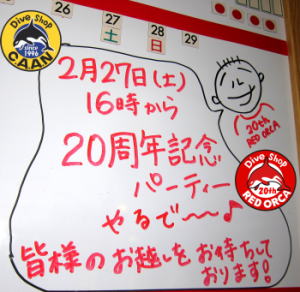 26 27 28 29
土 日 月
Dive Shop
CAAN
since 1996
2月27日(土)
16時から
20周年記念
パーティー
やるで〜〜♪
皆様のお越しをお待ちして
おります!
20th
RED ORCA
Dive Shop
20th
RED ORCA